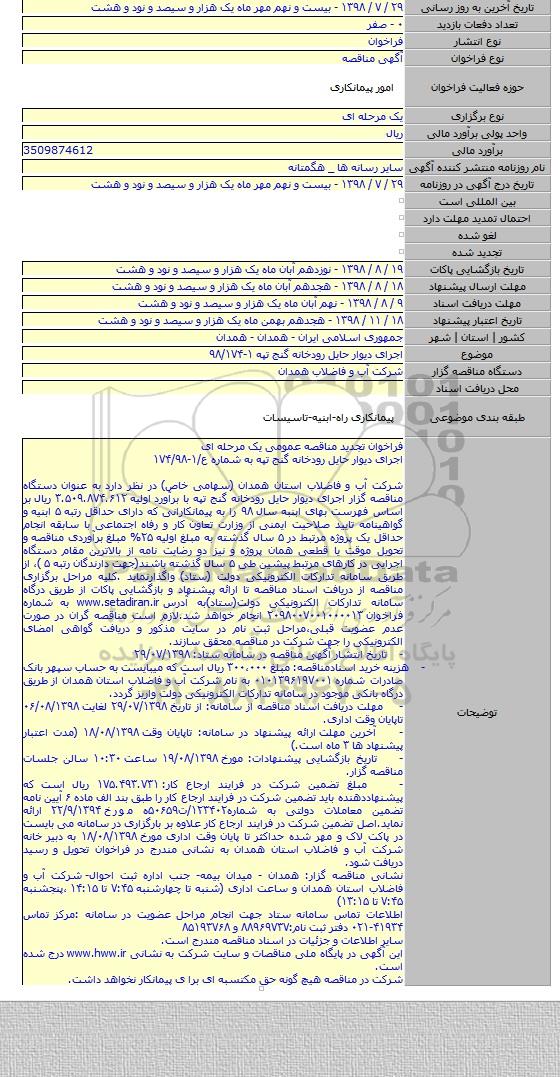 تاریخ آخرین به روز رسانی ۲۹ / ۷ / ۱۳۹۸ - بیست و نهم مهر ماه یک هزار و سیصد و نود و هشت
تعداد دفعات بازدید ۰ - صفر
نوع انتشار فراخوان
نوع فراخوان آگهی مناقصه
حوزه فعالیت فراخوان امور پیمانکاری
نوع برگزاری یک مرحله ای
واحد پولی برآورد مالی ریال
برآورد مالی 3509874612
نام روزنامه منتشر کننده آگهی سایر رسانه ها _ هگمتانه
تاریخ درج آگهی در روزنامه ۲۹ / ۷ / ۱۳۹۸ - بیست و نهم مهر ماه یک هزار و سیصد و نود و هشت
بین المللی است
احتمال تمدید مهلت دارد
لغو شده
تجدید شده
تاریخ بازگشایی پاکات ۱۹ / ۸ / ۱۳۹۸ - نوزدهم آبان ماه یک هزار و سیصد و نود و هشت
مهلت ارسال پیشنهاد ۱۸ / ۸ / ۱۳۹۸ - هجدهم آبان ماه یک هزار و سیصد و نود و هشت
مهلت دریافت اسناد ۹ / ۸ / ۱۳۹۸ - نهم آبان ماه یک هزار و سیصد و نود و هشت
تاریخ اعتبار پیشنهاد ۱۸ / ۱۱ / ۱۳۹۸ - هجدهم بهمن ماه یک هزار و سیصد و نود و هشت
کشور | استان | شهر جمهوری اسلامی ایران - همدان - همدان
موضوع اجرای دیوار حایل رودخانه گنج تپه ۱-۹۸/۱۷۴
دستگاه مناقصه گزار شرکت آب و فاضلاب همدان
محل دریافت اسناد
طبقه بندی موضوعی پیمانکاری راه-ابنیه-تاسیسات
توضیحات
فراخوان تجدید مناقصه عمومی یک مرحله ای
اجرای دیوار حایل رودخانه گنج تپه به شماره ع/۱-۱۷۴/۹۸
شرکت آب و فاضلاب استان همدان (سهامی خاص) در نظر دارد به عنوان دستگاه
مناقصه گزار اجرای دیوار حایل رودخانه گنج تپه با برآورد اولیه ۳.۵۰۹.۸۷۴.۶۱۲ ریال بر
اساس فهرست بهای ابنیه سال ۹۸ را به پیمانکارانی که دارای حداقل رتبه ۵ ابنیه و
گواهینامه تایید صلاحیت ایمنی از وزارت تعاون کار و رفاه اجتماعی با سابقه انجام
حداقل یک پروژه مرتبط در ۵ سال گذشته به مبلغ اولیه ۲۵% مبلغ برآوردی مناقصه و
تحویل موقت یا قطعی همان پروژه و نیز دو رضایت نامه از بالاترین مقام دستگاه
اجرایی در کارهای مرتبط پیشین طی ۵ سال گذشته باشند(جهت دارندگان رتبه ۵ )، از
طریق سامانه تدارکات الکترونیکی دولت (ستاد) واگذارنماید .کلیه مراحل برگزاری
مناقصه از دریافت اسناد مناقصه تا ارائه پیشنهاد و بازگشایی پاکات از طریق درگاه
سامانه تدارکات الکترونیکی دولت(ستاد)به آدرس www.setadiran.ir به شماره
فراخوان ۲۰۹۸۰۰۷۰۰۱۰۰۰۰۱۳ انجام خواهد شد.لازم است مناقصه گران در صورت
عدم عضویت قبلی،مراحل ثبت نام در سایت مذکور و دریافت گواهی امضای
الکترونیکی را جهت شرکت در مناقصه محقق سازند.
- تاریخ انتشار آگهی مناقصه در سامانه ستاد: ۲۹/۰۷/۱۳۹۸
- هزینه خرید اسنادمناقصه: مبلغ ۳۰۰،۰۰۰ ریال است که میبایست به حساب سپهر بانک
صادرات شماره ۰۱۰۱۳۹۶۱۹۷۰۰۱ به نام شرکت آب و فاضلاب استان همدان از طریق
درگاه بانکی موجود در سامانه تدارکات الکترونیکی دولت واریز گردد.
- مهلت دریافت اسناد مناقصه از سامانه: از تاریخ ۲۹/۰۷/۱۳۹۸ لغایت ۰۶/۰۸/۱۳۹۸
تاپایان وقت اداری.
- آخرین مهلت ارائه پیشنهاد در سامانه: تاپایان وقت ۱۸/۰۸/۱۳۹۸ (مدت اعتبار
پیشنهاد ها ۳ ماه است.)
- تاریخ بازگشایی پیشنهادات: مورخ ۱۹/۰۸/۱۳۹۸ ساعت ۱۰:۳۰ سالن جلسات
مناقصه گزار.
- مبلغ تضمین شرکت در فرایند ارجاع کار: ۱۷۵.۴۹۳.۷۳۱ ریال است که
پیشنهاددهنده باید تضمین شرکت در فرایند ارجاع کار را طبق بند الف ماده ۶ آیین نامه
تضمین معاملات دولتی به شماره۱۲۳۴۰۲/ت۵۰۶۵۹ه مورخ ۲۲/۹/۱۳۹۴ ارائه
نماید.اصل تضمین شرکت در فرایند ارجاع کار علاوه بر بارگزاری در سامانه می بایست
در پاکت لاک و مهر شده حداکثر تا پایان وقت اداری مورخ ۱۸/۰۸/۱۳۹۸ به دبیر خانه
شرکت آب و فاضلاب استان همدان به نشانی مندرج در فراخوان تحویل و رسید
دریافت شود.
نشانی مناقصه گزار: همدان - میدان بیمه- جنب اداره ثبت احوال- شرکت آب و
فاضلاب استان همدان و ساعت اداری (شنبه تا چهارشنبه ۷:۴۵ تا ۱۴:۱۵ ،پنجشنبه
۷:۴۵ تا ۱۳:۱۵)
اطلاعات تماس سامانه ستاد جهت انجام مراحل عضویت در سامانه :مرکز تماس
۰۲۱-۴۱۹۳۴ دفتر ثبت نام:۸۸۹۶۹۷۳۷ و ۸۵۱۹۳۷۶۸
سایر اطلاعات و جزئیات در اسناد مناقصه مندرج است.
این آگهی در پایگاه ملی مناقصات و سایت شرکت به نشانی www.hww.ir درج شده
است.
شرکت در مناقصه هیچ گونه حق مکتسبه ای برا ی پیمانکار نخواهد داشت.